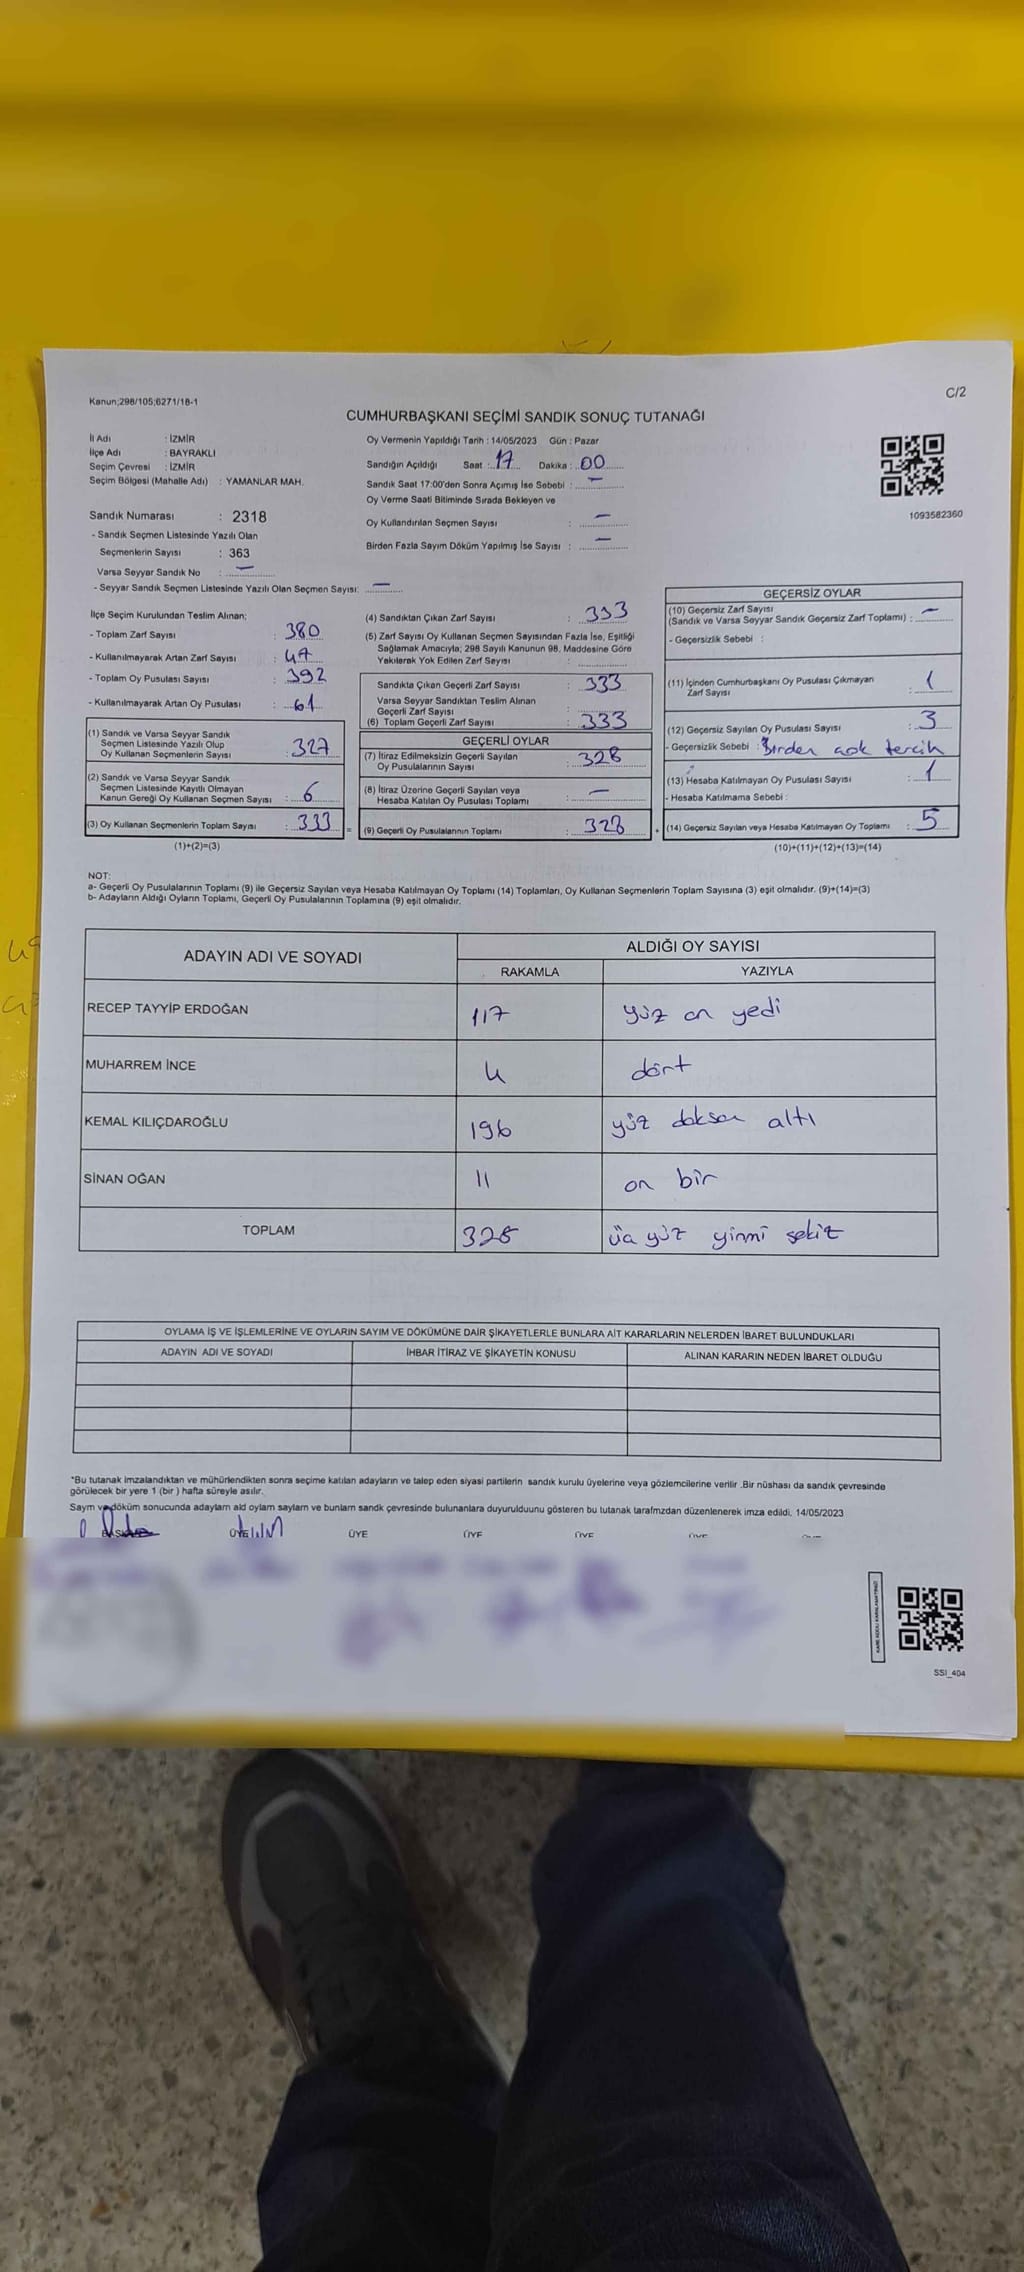 Kanun;298/105;6271/18-1
C/2
CUMHURBAŞKANI SEÇİMİ SANDIK SONUÇ TUTANAĞI
İl Adı : İZMİR
İlçe Adı : BAYRAKLI
Seçim Çevresi : İZMİR
Seçim Bölgesi (Mahalle Adı) : YAMANLAR MAH.
Sandık Numarası : 2318
- Sandık Seçmen Listesinde Yazılı Olan
Seçmenlerin Sayısı : 363
Varsa Seyyar Sandık No : —
- Seyyar Sandık Seçmen Listesinde Yazılı Olan Seçmen Sayısı: —
Oy Vermenin Yapıldığı Tarih : 14/05/2023 Gün : Pazar
Sandığın Açıldığı Saat : 17 Dakika : 00
Sandık Saat 17:00'den Sonra Açımış İse Sebebi : —
Oy Verme Saati Bitiminde Sırada Bekleyen ve
Oy Kullandırılan Seçmen Sayısı : —
Birden Fazla Sayım Döküm Yapılmış İse Sayısı : —
1093582360
İlçe Seçim Kurulundan Teslim Alınan;
- Toplam Zarf Sayısı : 380
- Kullanılmayarak Artan Zarf Sayısı : 47
- Toplam Oy Pusulası Sayısı : 392
- Kullanılmayarak Artan Oy Pusulası : 61
(1) Sandık ve Varsa Seyyar Sandık
Seçmen Listesinde Yazılı Olup
Oy Kullanan Seçmenlerin Sayısı : 327
(2) Sandık ve Varsa Seyyar Sandık
Seçmen Listesinde Kayıtlı Olmayan
Kanun Gereği Oy Kullanan Seçmen Sayısı : 6
(3) Oy Kullanan Seçmenlerin Toplam Sayısı : 333
(1)+(2)=(3)
(4) Sandıktan Çıkan Zarf Sayısı : 333
(5) Zarf Sayısı Oy Kullanan Seçmen Sayısından Fazla İse, Eşitliği
Sağlamak Amacıyla; 298 Sayılı Kanunun 98. Maddesine Göre
Yakılarak Yok Edilen Zarf Sayısı :
Sandıkta Çıkan Geçerli Zarf Sayısı : 333
Varsa Seyyar Sandıktan Teslim Alınan
Geçerli Zarf Sayısı :
(6) Toplam Geçerli Zarf Sayısı : 333
GEÇERLİ OYLAR
(7) İtiraz Edilmeksizin Geçerli Sayılan
Oy Pusulalarının Sayısı : 328
(8) İtiraz Üzerine Geçerli Sayılan veya
Hesaba Katılan Oy Pusulası Toplamı : —
(9) Geçerli Oy Pusulalarının Toplamı : 328
GEÇERSİZ OYLAR
(10) Geçersiz Zarf Sayısı
(Sandık ve Varsa Seyyar Sandık Geçersiz Zarf Toplamı) : —
- Geçersizlik Sebebi :
(11) İçinden Cumhurbaşkanı Oy Pusulası Çıkmayan
Zarf Sayısı : 1
(12) Geçersiz Sayılan Oy Pusulası Sayısı : 3
- Geçersizlik Sebebi : Birden çok tercih
(13) Hesaba Katılmayan Oy Pusulası Sayısı : 1
- Hesaba Katılmama Sebebi :
(14) Geçersiz Sayılan veya Hesaba Katılmayan Oy Toplamı : 5
(10)+(11)+(12)+(13)=(14)
NOT:
a- Geçerli Oy Pusulalarının Toplamı (9) ile Geçersiz Sayılan veya Hesaba Katılmayan Oy Toplamı (14) Toplamları, Oy Kullanan Seçmenlerin Toplam Sayısına (3) eşit olmalıdır. (9)+(14)=(3)
b- Adayların Aldığı Oyların Toplamı, Geçerli Oy Pusulalarının Toplamına (9) eşit olmalıdır.
ADAYIN ADI VE SOYADI ALDIĞI OY SAYISI
RAKAMLA YAZIYLA
RECEP TAYYİP ERDOĞAN 117 yüz on yedi
MUHARREM İNCE 4 dört
KEMAL KILIÇDAROĞLU 196 yüz doksan altı
SİNAN OĞAN 11 on bir
TOPLAM 328 üç yüz yirmi sekiz
OYLAMA İŞ VE İŞLEMLERİNE VE OYLARIN SAYIM VE DÖKÜMÜNE DAİR ŞİKAYETLERLE BUNLARA AİT KARARLARIN NELERDEN İBARET BULUNDUKLARI
ADAYIN ADI VE SOYADI İHBAR İTİRAZ VE ŞİKAYETİN KONUSU ALINAN KARARIN NEDEN İBARET OLDUĞU
*Bu tutanak imzalandıktan ve mühürlendikten sonra seçime katılan adayların ve talep eden siyasi partilerin sandık kurulu üyelerine veya gözlemcilerine verilir .Bir nüshası da sandık çevresinde
görülecek bir yere 1 (bir ) hafta süreyle asılır.
Sayım ve döküm sonucunda adaylarn ald oylarn saylarn ve bunlarn sandk çevresinde bulunanlara duyurulduunu gösteren bu tutanak tarafmzdan düzenlenerek imza edildi. 14/05/2023
BAŞKAN ÜYE ÜYE ÜYE ÜYE ÜYE
SSI_404